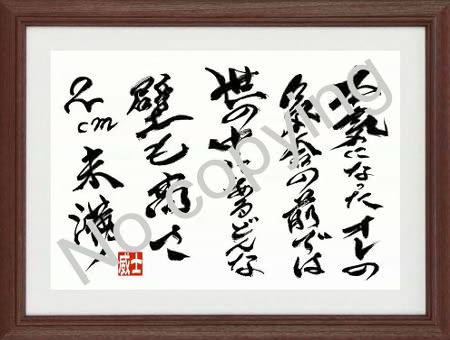 本気になったオレの
気合の前では
世の中にあるどんな
壁も高さ
2cm未満！
威士
No copying